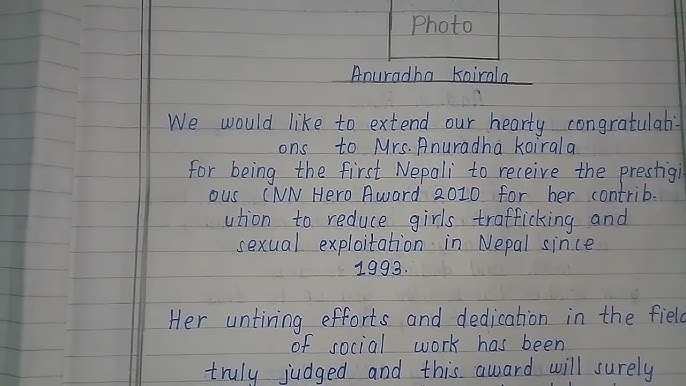 Photo
Anuradha Koirala
We would like to extend our hearty congratulati-
ons to Mrs. Anuradha Koirala
for being the first Nepali to receive the prestigi-
ous CNN Hero Award 2010 for her contrib-
ution to reduce girls trafficking and
sexual exploitation in Nepal since
1993.
Her untiring efforts and dedication in the field
of social work has been
truly judged and this award will surely